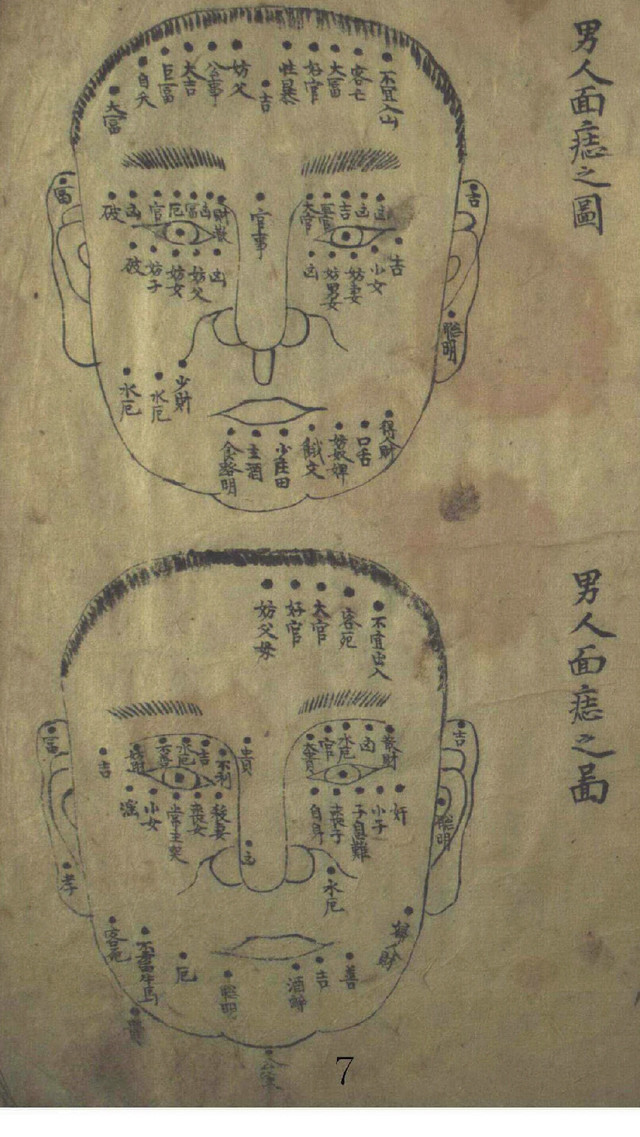 男人面痣之圖
不宜入山
客亡
大富
好官
性暴
吉
妨父
公事
大吉
巨富
自夭
大富
吉
聰明
富
破
凶
官
厄
富
凶
財散
官事
大官
吉
凶
破
妨子
妨女
妨父
凶
凶
妨男女
妨妻
小女
吉
水厄
水厄
少財
主酒
少庄田
妨奴婢
口舌
得人財
男人面痣之啚
不宜出入
客死
大官
好官
妨父母
吉
聰明
富
孝
吉
水厄
吉
不利
貴
官
水厄
凶
長財
小女
喪女
殺妻
自身
喪子
子息難
小子
奸
凶
水厄
客死
厄
聰明
吉
善
財
7